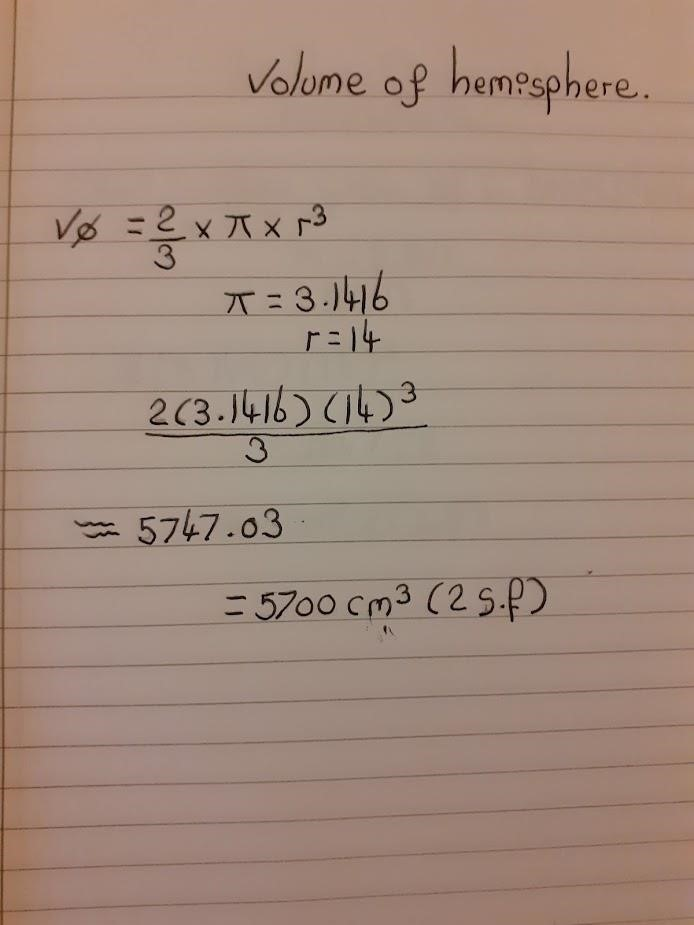 Volume of hemisphere.
Vø = 2/3 x π x r³
π = 3.1416
r = 14
2(3.1416)(14)³/3
≈ 5747.03
= 5700 cm³ (2 s.f)